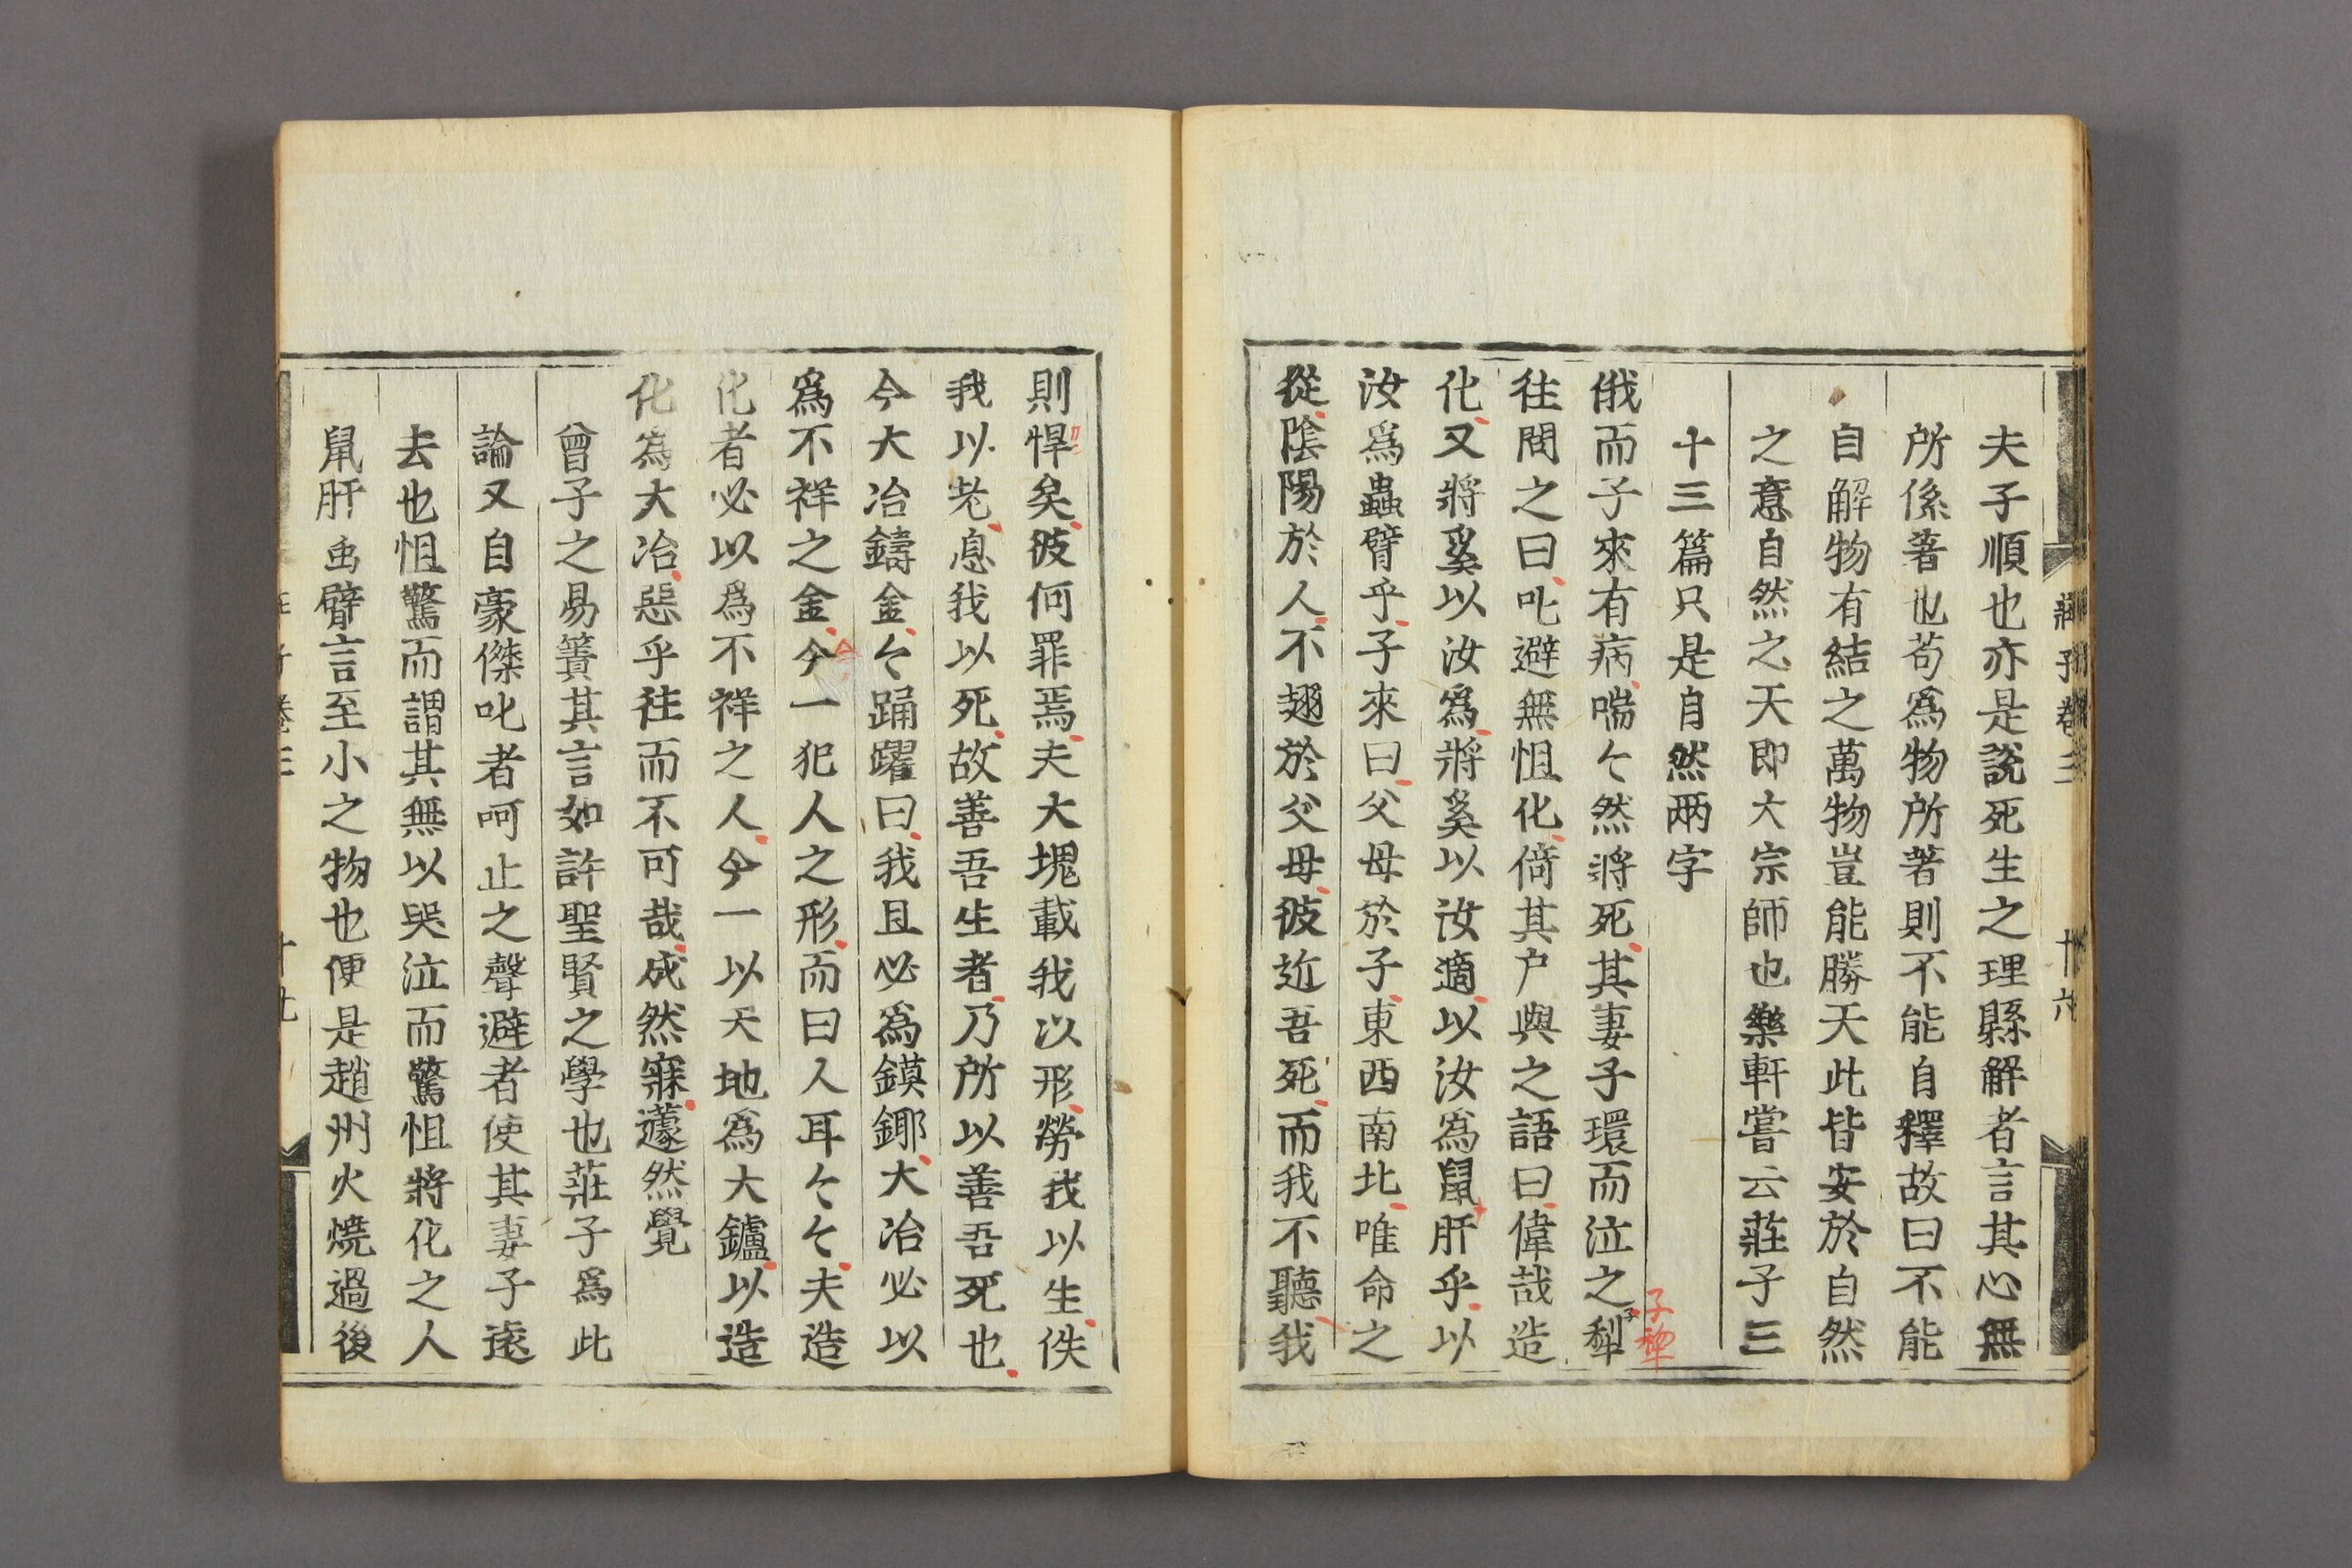 夫子順也亦是說死生之理縣解者言其心無
所係著也苟爲物所著則不能自釋故曰不能
自解物有結之萬物豈能勝天此皆安於自然
之意自然之天即大宗師也樂軒嘗云莊子三
十三篇只是自然兩字
俄而子來有病喘々然將死其妻子環而泣之子犁
子犂
往問之曰叱避無怛化倚其户與之語曰偉哉造
化又將奚以汝爲將奚以汝適以汝爲鼠肝乎以
汝爲蟲臂乎子來曰父母於子東西南北唯命之
從陰陽於人不翅於父母彼近吾死而我不聽我
則悍矣彼何罪焉夫大塊載我以形勞我以生佚
我以老息我以死故善吾生者乃所以善吾死也
今大冶鑄金々踊躍曰我且必爲鏌鎁大冶必以
爲不祥之金今一犯人之形而曰人耳々々夫造
化者必以爲不祥之人今一以天地爲大鑪以造
化爲大冶惡乎往而不可哉成然寐蘧然覺
曾子之易簀其言如許聖賢之學也莊子爲此
論又自豪傑叱者呵止之聲避者使其妻子遠
去也怛驚而謂其無以哭泣而驚怛將化之人
鼠肝虫臂言至小之物也便是趙州火燒過後